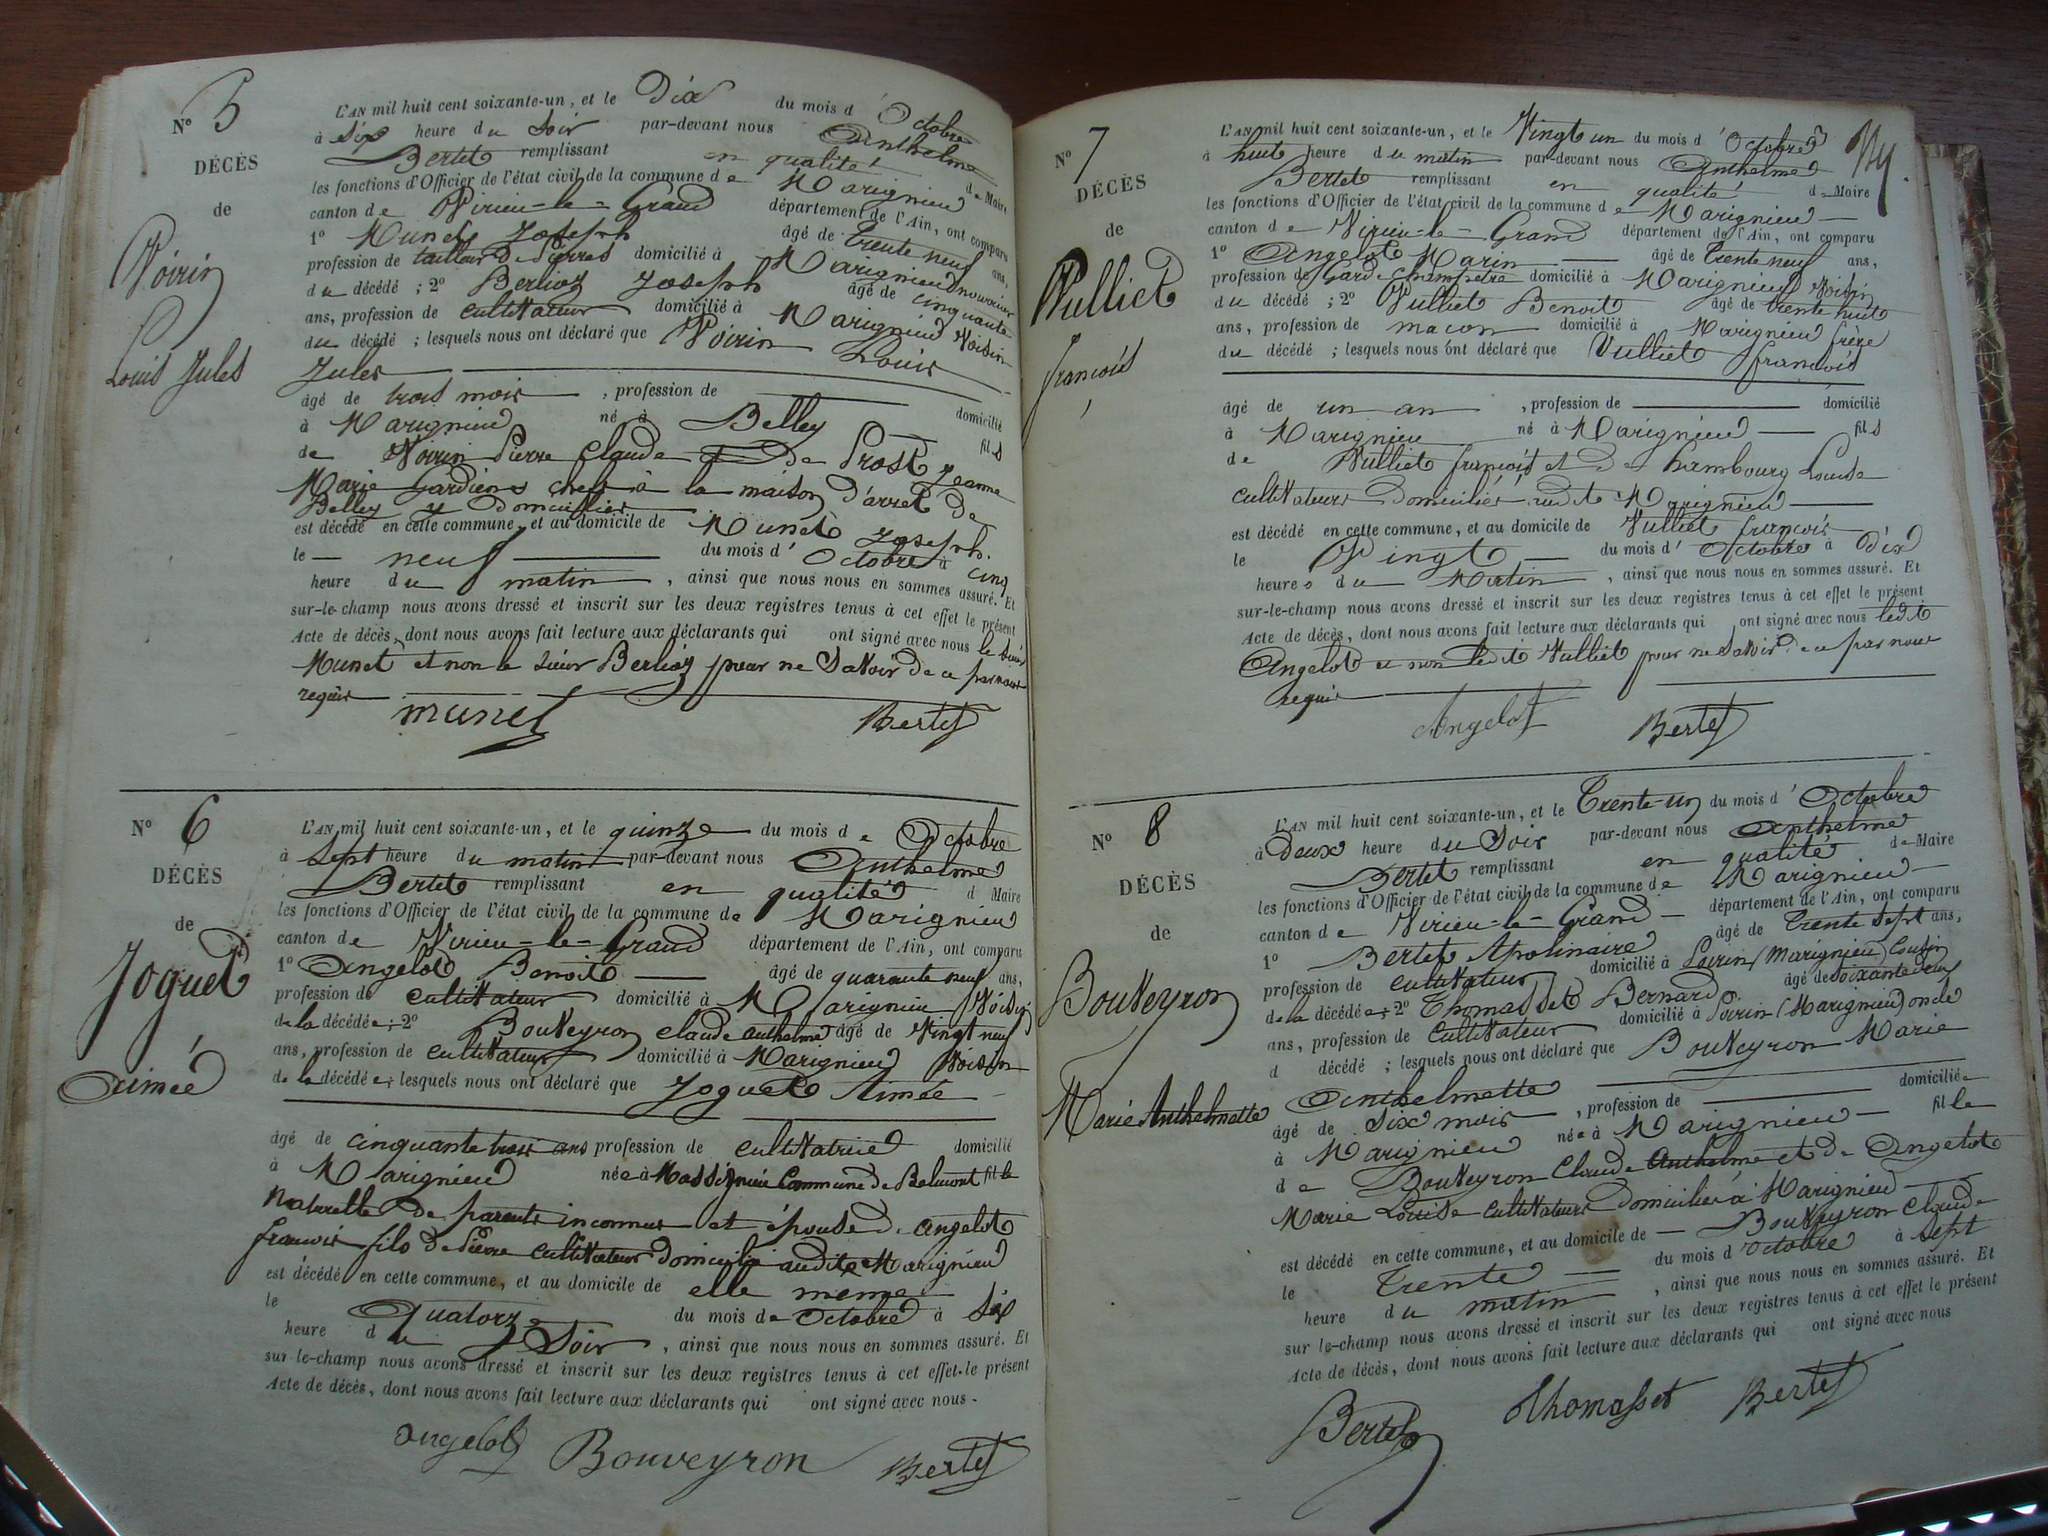 N° 5
DÉCÈS
de
Voirin
Louis Jules
L'AN mil huit cent soixante-un, et le Dix du mois d'Octobre
à six heure du Soir par-devant nous Anthelme
Bertet remplissant en qualité de Maire
les fonctions d'Officier de l'état civil de la commune de Marignieu
canton de Virieu-le-Grand département de l'Ain, ont comparu
1° Munet Joseph âgé de trente neuf ans,
profession de tailleur de pierres domicilié à Marignieu nourricier
du décédé ; 2° Berlioz Joseph âgé de cinquante
ans, profession de cultivateur domicilié à Marignieu Voisin
du décédé ; lesquels nous ont déclaré que Voirin Louis
Jules
âgé de trois mois , profession de domicilié
à Marignieu né à Belley fils
de Voirin Pierre Claude et de Prost Jeanne
Marie Gardiens chefs à la maison d'arret de
Belley y domiciliés
est décédé en cette commune, et au domicile de Munet Joseph.
le neuf du mois d'Octobre à cinq
heure du matin , ainsi que nous nous en sommes assuré. Et
sur-le-champ nous avons dressé et inscrit sur les deux registres tenus à cet effet le présent
Acte de décès, dont nous avons fait lecture aux déclarants qui ont signé avec nous le sieur
Munet et non le sieur Berlioz pour ne Savoir de ce par nous
requis
munet Bertet
N° 6
DÉCÈS
de
Joguet
Aimée
L'AN mil huit cent soixante-un, et le quinze du mois de Octobre
à Sept heure du matin par-devant nous Anthelme
Bertet remplissant en qualité d Maire
les fonctions d'Officier de l'état civil de la commune de Marignieu
canton de Virieu-le-Grand département de l'Ain, ont comparu
1° Angelot Benoit âgé de quarante neuf ans,
profession de cultivateur domicilié à Marignieu Voisin
de la décédée ; 2° Bouveyron claude anthelme âgé de Vingt neuf
ans, profession de cultivateur domicilié à Marignieu Voisin
de la décédée ; lesquels nous ont déclaré que Joguet Aimée
âgé de cinquante trois ans profession de cultivatrice domicilié
à Marignieu née à Massignieu Commune de Belmont fille
Naturelle de parents inconnus et épouse d. Angelot
françois fils de Pierre cultivateur domicilié audit Marignieu
est décédé en cette commune, et au domicile de elle meme
le Quatorze du mois de Octobre à Six
heure du Soir , ainsi que nous nous en sommes assuré. Et
sur-le-champ nous avons dressé et inscrit sur les deux registres tenus à cet effet le présent
Acte de décès, dont nous avons fait lecture aux déclarants qui ont signé avec nous.
angelot Bouveyron Bertet
N° 7
DÉCÈS
de
Vulliet
françois
L'AN mil huit cent soixante-un, et le Vingt un du mois d'Octobre
à huit heure du matin par-devant nous Anthelme
Bertet remplissant en qualité de Maire
les fonctions d'Officier de l'état civil de la commune de Marignieu
canton de Virieu-le-Grand département de l'Ain, ont comparu
1° Angelot Marin âgé de trente neuf ans,
profession de Garde champetre domicilié à Marignieu Voisin
du décédé ; 2° Vulliet Benoit âgé de trente huit
ans, profession de macon domicilié à Marignieu frère
du décédé ; lesquels nous ont déclaré que Vulliet françois
âgé de un an , profession de domicilié
à Marignieu né à Marignieu fils
de Vulliet françois et de Chambourg Louise
cultivateurs domiciliés audit Marignieu
est décédé en cette commune, et au domicile de Vulliet françois
le Vingt du mois d'Octobre à Dix
heures du Matin , ainsi que nous nous en sommes assuré. Et
sur-le-champ nous avons dressé et inscrit sur les deux registres tenus à cet effet le présent
Acte de décès, dont nous avons fait lecture aux déclarants qui ont signé avec nous ledit
Angelot et non ledit Vulliet pour ne Savoir de ce par nous
requis
Angelot Bertet
N° 8
DÉCÈS
de
Bouveyron
Marie Anthelmette
L'AN mil huit cent soixante-un, et le Trente-un du mois d'Octobre
à Deux heure du Soir par-devant nous Anthelme
Bertet remplissant en qualité de Maire
les fonctions d'Officier de l'état civil de la commune de Marignieu
canton de Virieu-le-Grand département de l'Ain, ont comparu
1° Bertet Apolinaire âgé de trente sept ans,
profession de cultivateur domicilié à Poirin (Marignieu) Cousin
de la décédée ; 2° Thomasset Bernard âgé de soixante deux
ans, profession de Cultivateur domicilié à Poirin (Marignieu) oncle
d décédé ; lesquels nous ont déclaré que Bouveyron Marie
Anthelmette
âgé de Six mois , profession de domiciliée
à Marignieu née à Marignieu fille
de Bouveyron Claude Anthelme et de Angelot
Marie Louise cultivateurs Domiciliés à Marignieu
est décédé en cette commune, et au domicile de Bouveyron Claude
le Trente du mois d'Octobre à Sept
heure du matin , ainsi que nous nous en sommes assuré. Et
sur le-champ nous avons dressé et inscrit sur les deux registres tenus à cet effet le présent
Acte de décès, dont nous avons fait lecture aux déclarants qui ont signé avec nous
Bertet Thomasset Bertet